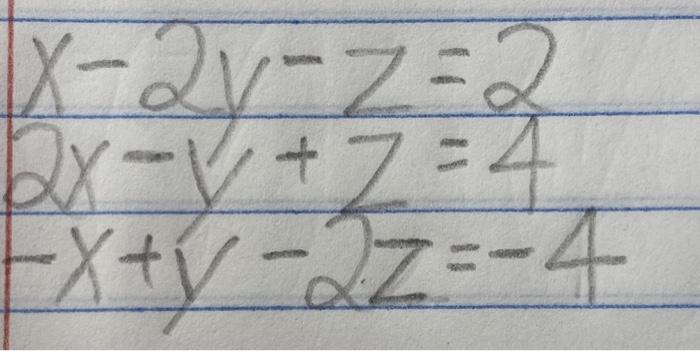 x - 2y - z = 2
2x - y + z = 4
-x + y - 2z = -4